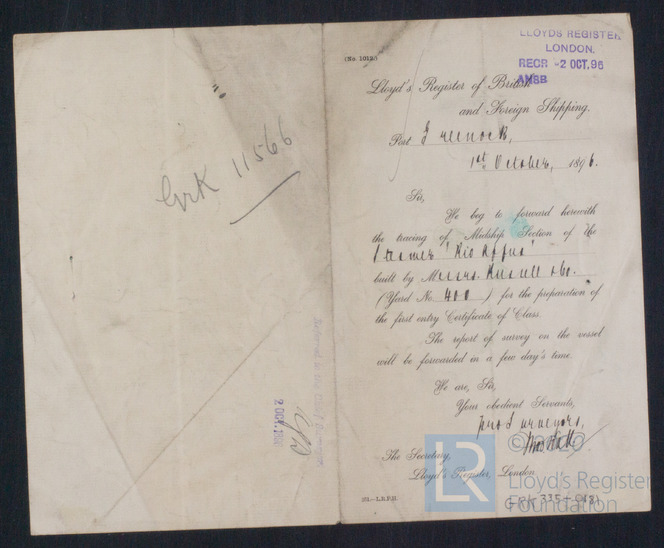 Grk 11566
2 OCT.
(No. 101
LLOYDS REGISTER
LONDON.
RECR -2 OCT.96
ANSB
Lloyd's Register of British
and Foreign Shipping.
Port Greenock,
1st October, 1896.
Sir,
We beg to forward herewith
the tracing of Midship Section of the
Steamer "Rio
built by Messrs. Russell & Co.
(Yard No. 400 ) for the preparation of
the first entry Certificate of Class.
The report of survey on the vessel
will be forwarded in a few day's time.
We are, Sir,
Your obedient Servants,
Surveyors,
The Secretary,
Lloyd's Register, London.
L.R.P.H.
LR
©2020
Lloyd's Register
Foundation